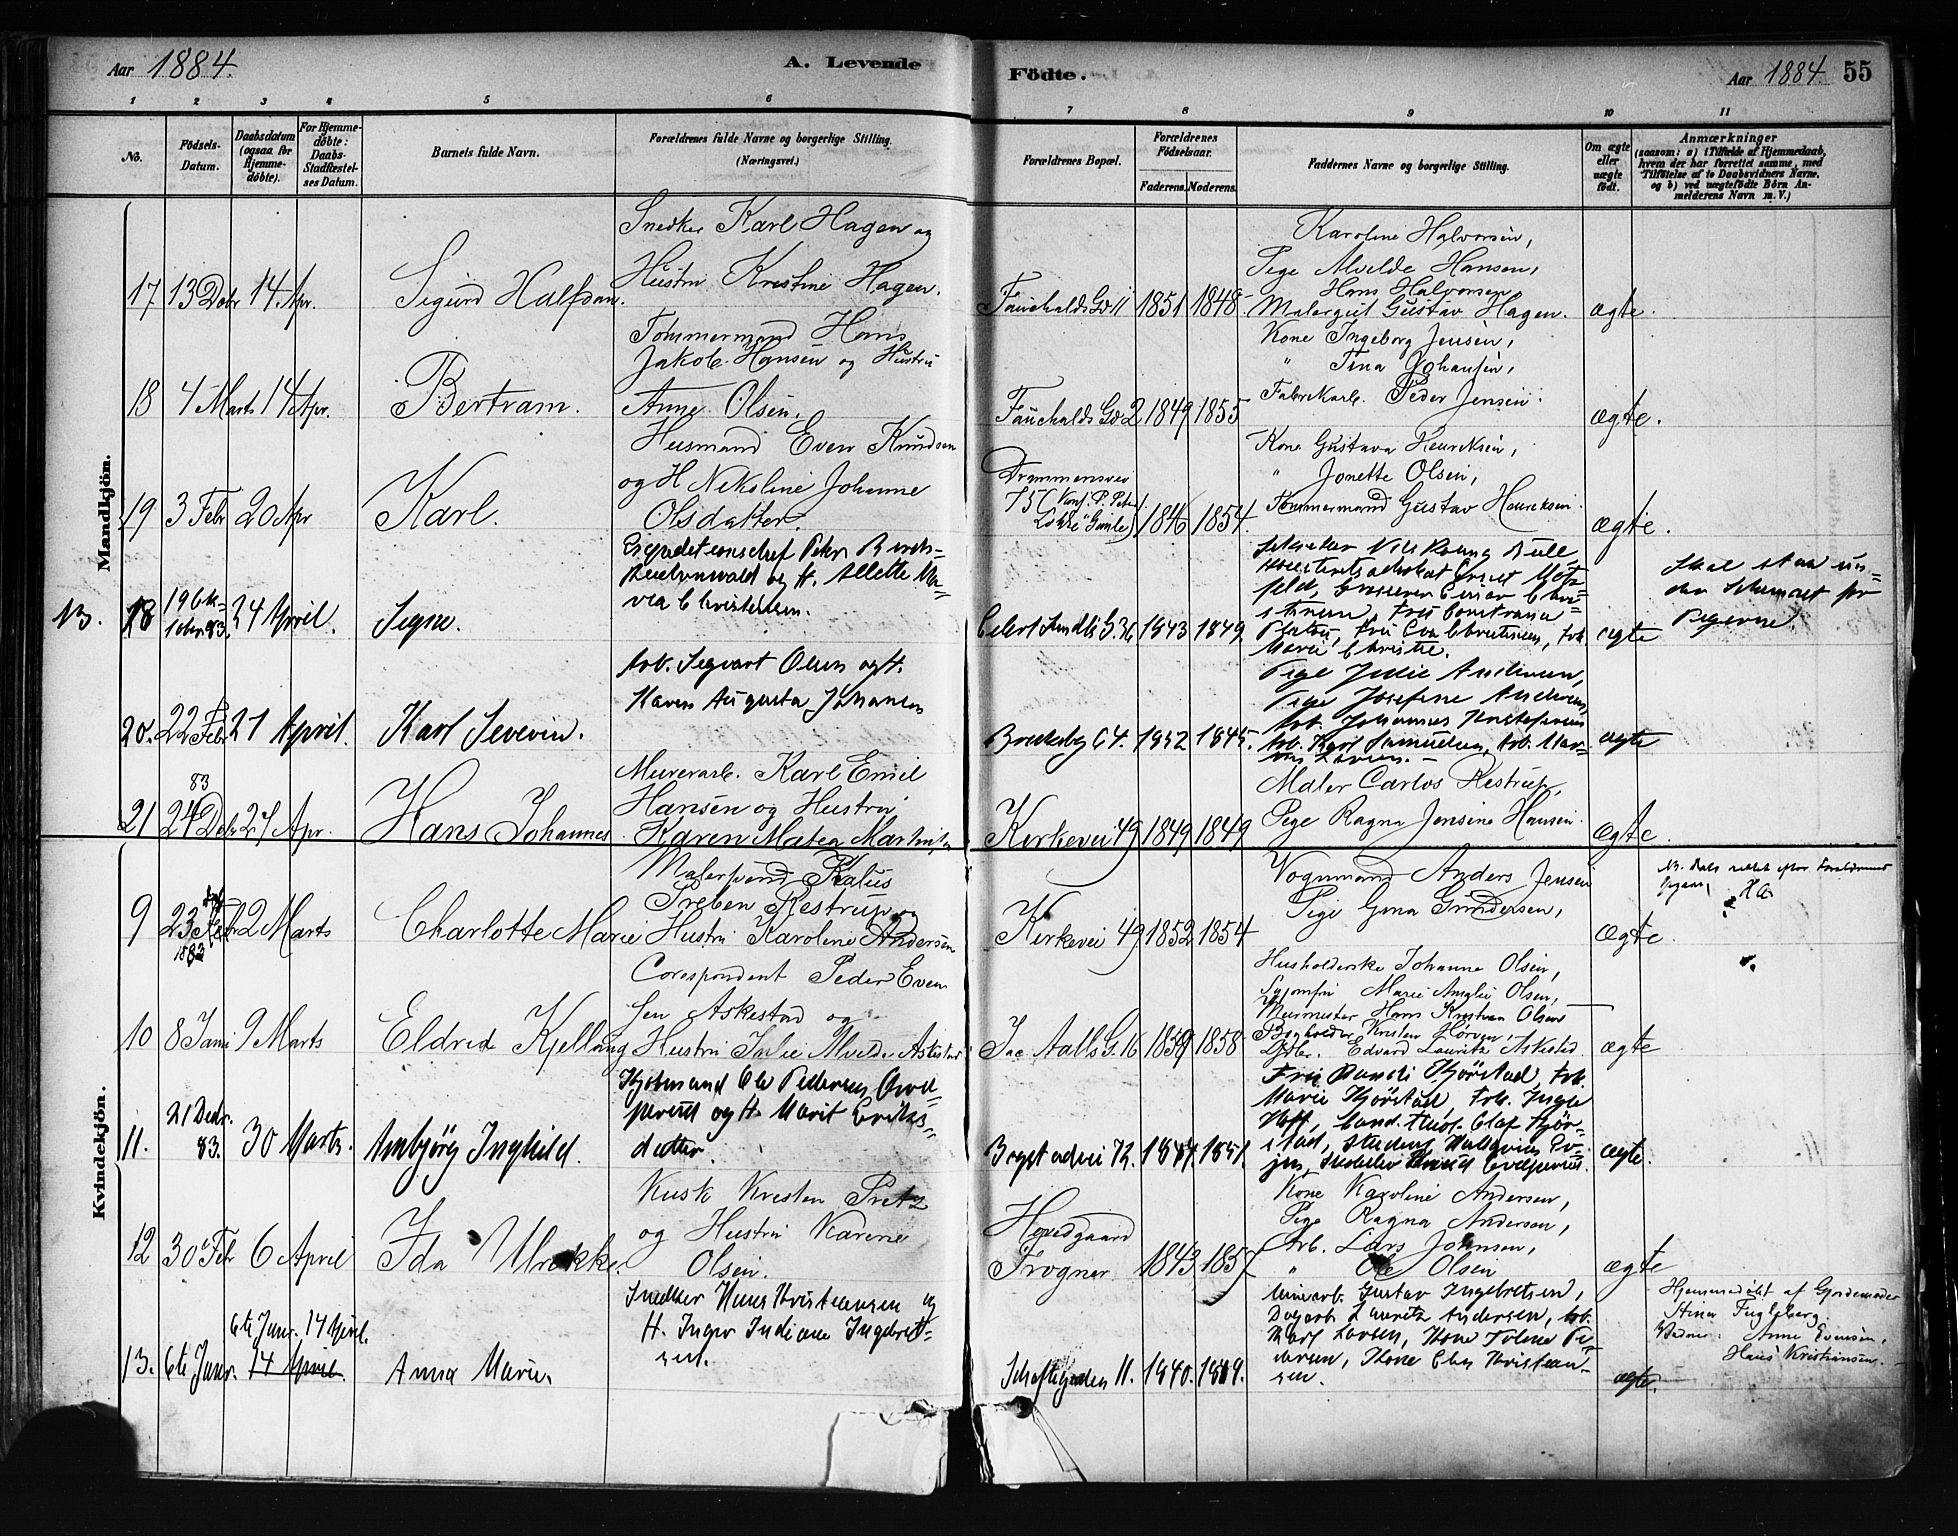 Aar 1884.
A. Levende
Födte.
Aar 1884. 55
1 2 3 4 5 6 7 8 9 10 11
No.
Födsels-
Datum.
Daabsdatum
(ogsaa for
Hjemme-
döbte).
For Hjemme-
döbte:
Daabs-
Stadfæstel-
ses Datum.
Barnets fulde Navn.
Forældrenes fulde Navne og borgerlige Stilling.
(Næringsvei.)
Forældrenes Bopæl.
Forældrenes
Födselsaar.
Faderens. Moderens.
Faddernes Navne og borgerlige Stilling.
Om ægte
eller
uægte
født.
Anmærkninger
(saasom: a) i Tilfælde af Hjemmedaab,
hvem der har forrettet samme, med
Tilföielse af to Daabsvidners Navne,
og b) ved uægtefödte Börn An-
melderens Navn m. V.)
Mandkjön.
17 13 Dcbr 14 Apr. Sigurd Halfdan.
Snedker Karl Hagen og
Hustru Kristine Hagen.
Fauchalds Gd 11 1851 1848
Karoline Halvorsen,
Pige Alvilde Hansen,
Hans Halvorsen,
Malergut Gustav Hagen.
ægte.
18 4 Marts 14 Apr. Bertram.
Tømmermand Hans
Jakob Hansen og Hustru
Anne Olsen.
Fauchalds Gd 2 1849 1855
Kone Ingeborg Jensen,
" Tina Johansen,
Fabrikarb. Peder Jensen.
ægte.
19 3 Febr 20 Apr Karl.
Husmand Even Knudsen
og H Nikoline Johanne
Olsdatter.
Drammensvei
75 (Kons. P. Peter
Løkke "Gimle) 1846 1854
Kone Gustava Henriksen,
" Jonette Olsen,
Tømmermand Gustav Henriksen
ægte.
NB. 18 19 Ok-
tobr. 83. 24 April. Signe.
Expeditionschef Peter Birch-
Reichenwald og H. Allette Ma-
ria Christensen.
Eilert Sundts G. 36. 1843 1849
ægte
Skal staa un-
der Schemaet for
Pigerne.
20. 22 Febr 27 April. Karl Severin.
Arb. Sigvart Olsen og H.
Karen Augusta Johansen
Briskeby 64. 1852 1845.
Pige Julie Andersen,
Pige Josefine Andersen,
Arb. Johannes Kristofersen
Arb. Karl Samuelsen, Arb. Mar-
ægte
21 83
24 Dcbr 27 Apr. Hans Johannes
Murerarb. Karl Emil
Hansen og Hustru
Karen Matea Martinsen
Kirkevei 49 1849 1849
Maler Carlos Kestrup,
Pige Ragna Jensine Hansen.
ægte.
Kvindekjön.
9 23 Febr 2 Marts
1883
Charlotte Marie
Malersvend Kalus
Preben Kestrup og
Hustru Karoline Andersen
Kirkevei 49 1852 1854
Vognmand Anders Jensen
Pige Gina Gundersen,
ægte.
10 8 Janr 9 Marts Eldrid Kjellaug
Corespondent Peder Even
sen Askestad og
Hustru Julie Alvilde Askestad
Jac Aalls G. 16 1859 1858
Husholderske Johanne Olsen,
Syjomfru Marie Amalie Olsen,
Murmester Hans Kristian Olsen
Bogholder Kristen
Edvard Lauritz Askestad
ægte
11. 21 Decbr.
83. 30 Marts. Ambjörg Inghild.
Kjøbmand Ole Pedersen
og H. Marit Eriks-
datter.
Bogstadvei 72. 1847. 1851.
Fru Randi Kjörstad, Frk.
Marie Kjörstad, Frk. Inga
Hoff, Cand. theol. Olaf Kjör-
stad,
ægte.
12 30 Febr 6 April Ida Ulrikke.
Kusk Kristen Pretz
og Hustru Karine
Olsen.
Hovedgaard
Frogner 1843 1857
Kone Karoline Andersen,
Pige Ragna Andersen,
Arb. Lars Johnsen,
" Ole Olsen
ægte
13. 6te Janr. 6te Janr. 14 April.
14 April. Anna Marie.
Snedker Hans Kristiansen og
H. Inger Indiane Ingebret-
sen.
Schaftegaden 11. 1840. 1849.
Murarb. Gustav Ingebretsen,
Dagarb. Lauritz Andersen, Arb.
Karl Larsen, Kone Toline Pe-
dersen, Kone Elen Kristian-
sen.
ægte.
Hjemmedøbt af Gjordemoder
Stina Fuglberg
Vidner: Anne Evensen,
Hans Kristiansen.